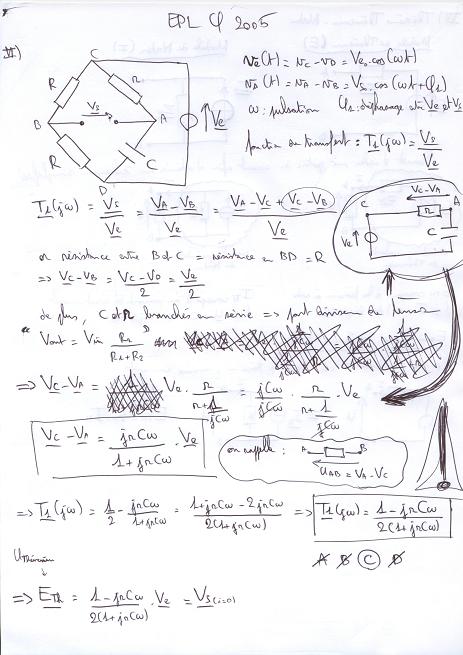 EPL φ 2005
VI)
C
R
r
B
Vs
A
Ve
R
C
D
ve(t) = vC - vD = Ve0.cos(ωt)
vs(t) = vA - vB = Vs.cos(ωt+φ1)
ω: pulsation φ1: déphasage entre Ve et Vs
fonction de transfert : T1(jω) = Vs/Ve
T1(jω) = Vs/Ve = (VA-VB)/Ve = (VA-VC + VC-VB)/Ve
VC-VA
C
r
A
Ve
C
or résistance entre B et C = résistance en BD = R
=> VC-VB = (VC-VD)/2 = Ve/2
de plus, C et r branchés en série => pont diviseur de tension
" Vout = Vin R2/(R1+R2) "
=> VC-VA = Ve . r/(r+1/jCω) = jCω/jCω . r/(r+1/jCω) . Ve
VC - VA = jrCω/(1+jrCω) . Ve
on rappelle : A B
UAB = VA-VC
=> T1(jω) = 1/2 - jrCω/(1+jrCω) = (1+jrCω-2jrCω)/(2(1+jrCω)) => T1(jω) = (1-jrCω)/(2(1+jrCω))
A B C D
UThévenin
=> ETh = (1-jrCω)/(2(1+jrCω)) . Ve = Vs(i=0)